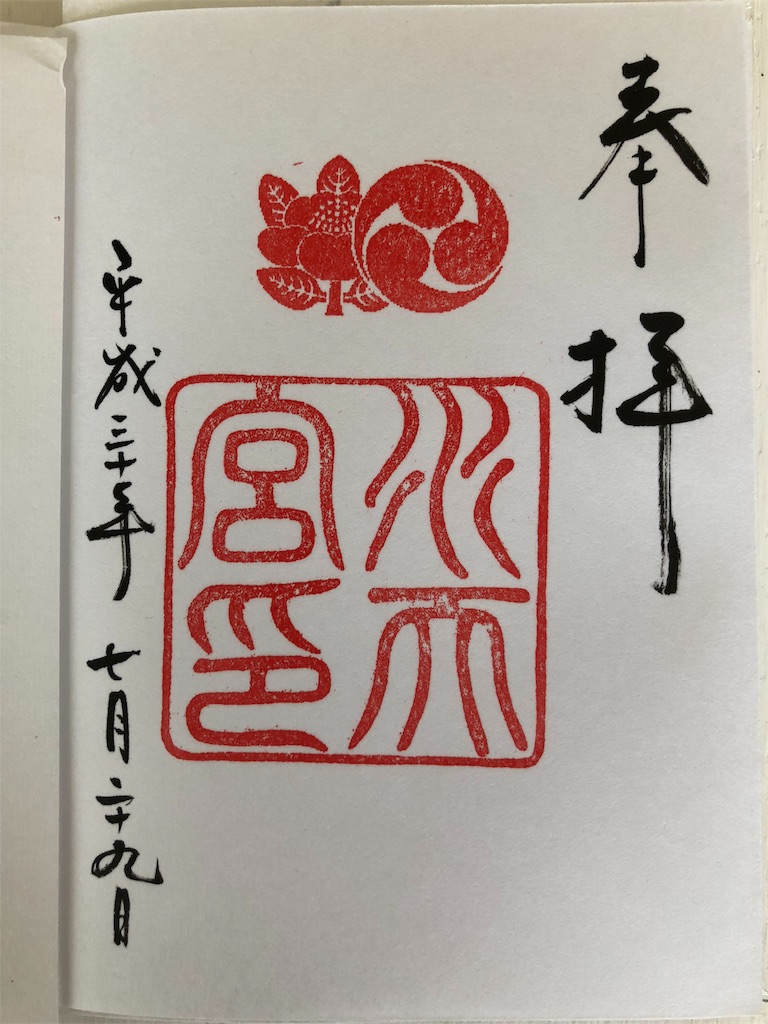 奉拝
水天
宮印
平成三十年 七月二十九日